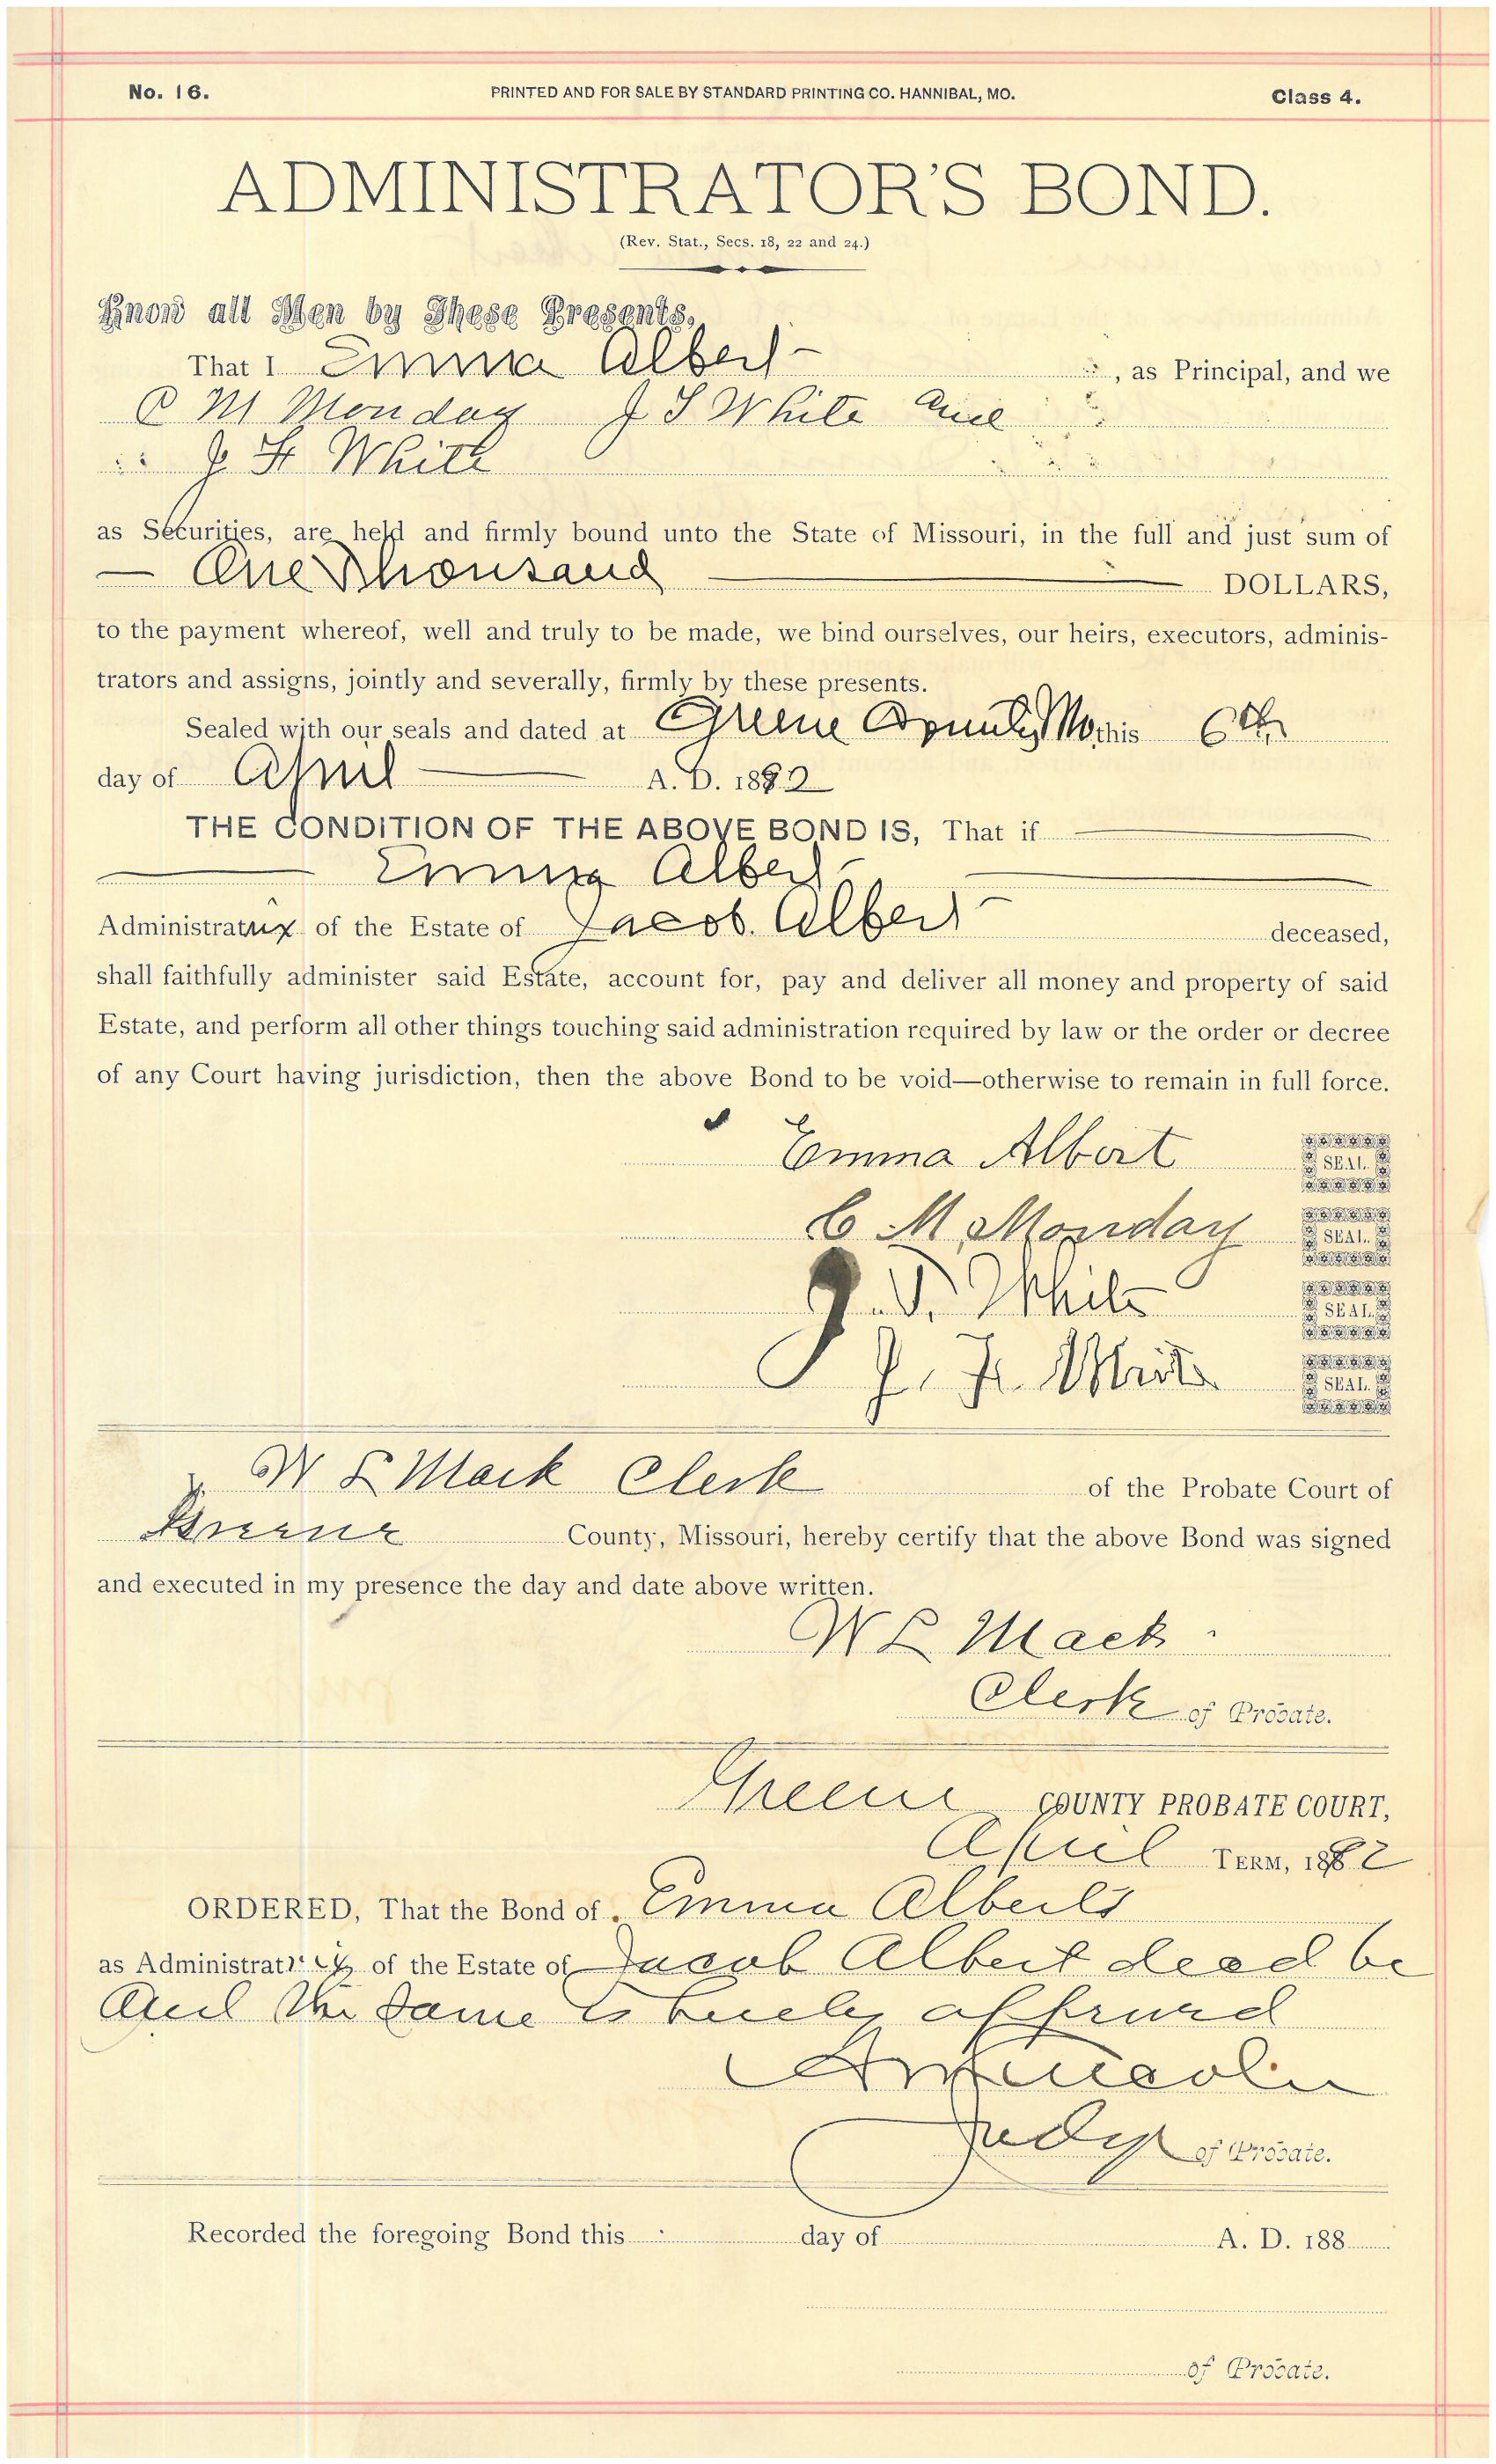 No. 16.
PRINTED AND FOR SALE BY STANDARD PRINTING CO. HANNIBAL, MO.
Class 4.
ADMINISTRATOR'S BOND.
(Rev. Stat., Secs. 18, 22 and 24.)
Know all Men by These Presents,
That I Emma Albert , as Principal, and we
C M Monday J S White and
J F White
as Securities, are held and firmly bound unto the State of Missouri, in the full and just sum of
— One Thousand — DOLLARS,
to the payment whereof, well and truly to be made, we bind ourselves, our heirs, executors, adminis-
trators and assigns, jointly and severally, firmly by these presents.
Sealed with our seals and dated at Greene County Mo this 6th
day of April A. D. 1892
THE CONDITION OF THE ABOVE BOND IS, That if
Emma Albert
Administratrix of the Estate of Jacob Albert deceased,
shall faithfully administer said Estate, account for, pay and deliver all money and property of said
Estate, and perform all other things touching said administration required by law or the order or decree
of any Court having jurisdiction, then the above Bond to be void—otherwise to remain in full force.
Emma Albert SEAL
C M Monday SEAL
J. White SEAL
J. F. White SEAL
W L Mack Clerk of the Probate Court of
Greene County, Missouri, hereby certify that the above Bond was signed
and executed in my presence the day and date above written.
W L Mack
Clerk of Probate.
Greene COUNTY PROBATE COURT,
April TERM, 1892
ORDERED, That the Bond of Emma Alberts
as Administratrix of the Estate of Jacob Albert dead be
and the same is hereby approved
Lincoln
Judge of Probate.
Recorded the foregoing Bond this day of A. D. 188
of Probate.